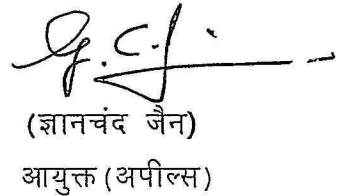 G.C.J.
(ज्ञानचंद जैन)
आयुक्त (अपील्स)